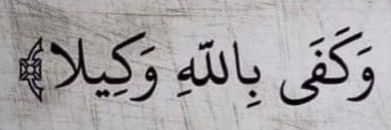 وَكَفَى بِاللّهِ وَكِيلا﴾